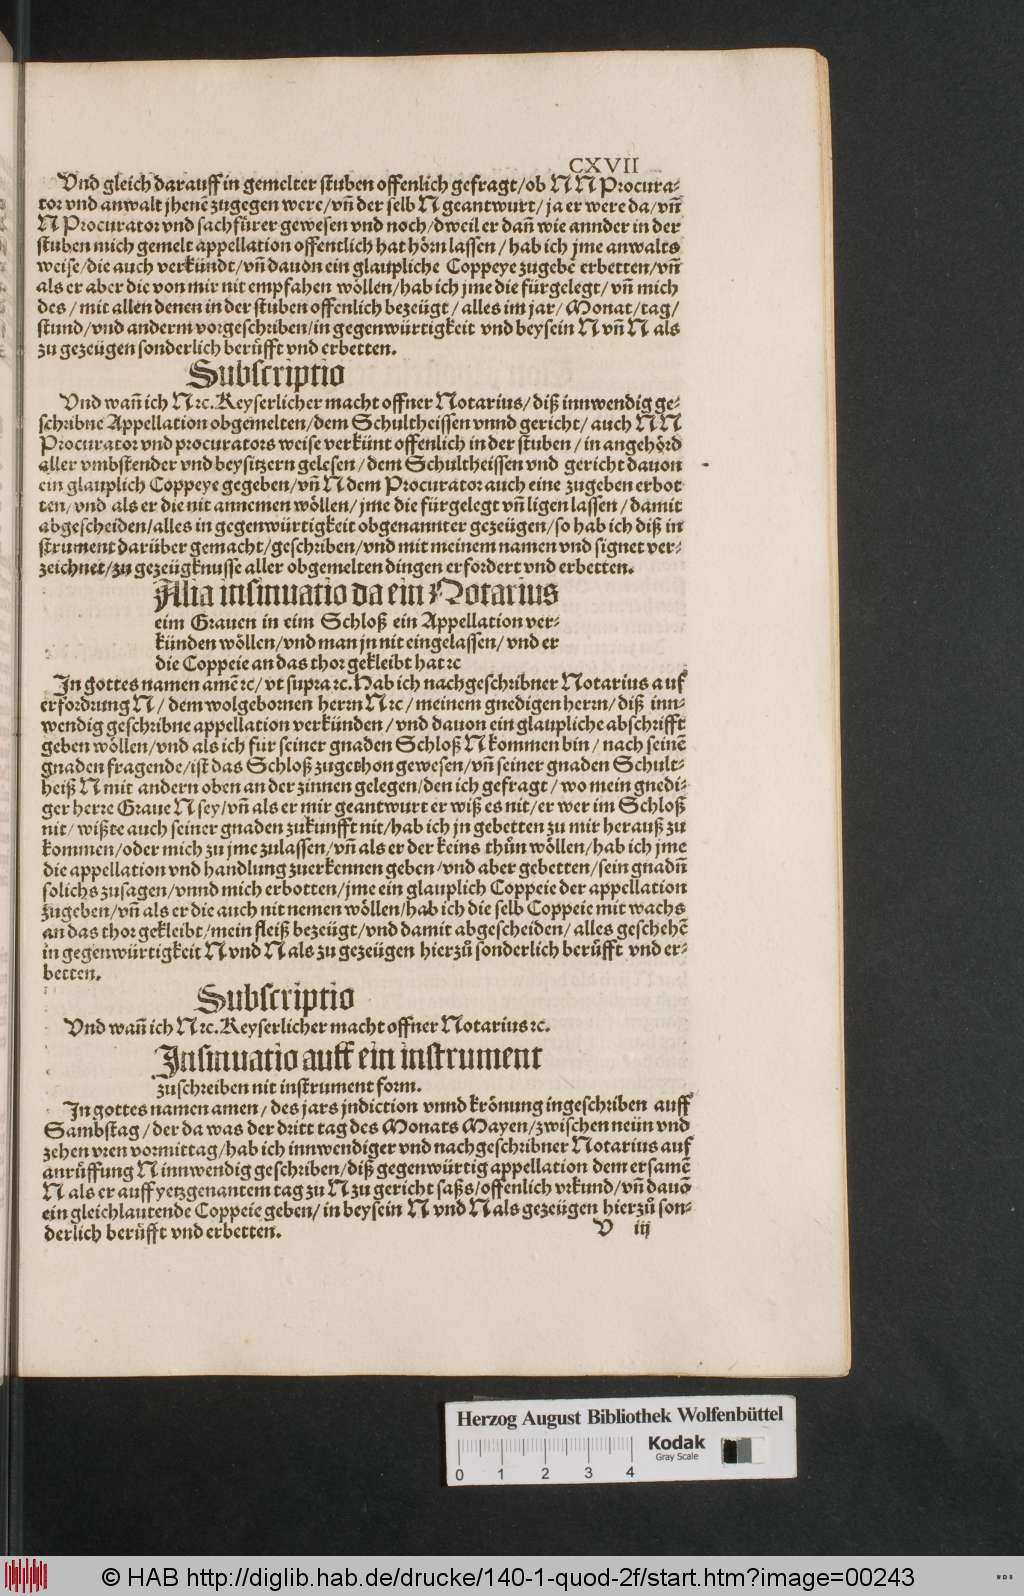 CXVII
Vnd gleich darauff in gemelter stuben offenlich gefragt/ob N N Procura-
tor vnd anwalt jhenē zugegen were/vn̄ der selb N geantwurt/ ja er were da/vn̄
N Procurator vnd sachfürer gewesen vnd noch/dweil er dan̄ wie annder in der
stuben mich gemelt appellation offentlich hat hörn lassen/ hab ich jme anwalts
weise/die auch verkündt/vn̄ dauon ein glaupliche Coppeye zugebē erbetten/vn̄
als er aber die von mir nit empfahen wöllen/hab ich jme die fürgelegt/ vn̄ mich
des/ mit allen denen in der stuben offenlich bezeügt/ alles im jar/ Monat/tag/
stund/vnd anderm vorgeschriben/in gegenwürtigkeit vnd beysein N vn̄ N als
zu gezeügen sonderlich berüfft vnd erbetten.
Subscriptio
Vnd wan̄ ich N ꝛc. Keyserlicher macht offner Notarius/ diß innwendig ge-
schribne Appellation obgemelten/dem Schultheissen vnnd gericht/ auch N N
Procurator vnd procurators weise verkünt offenlich in der stuben/ in angehörd
aller vmbstender vnd beysitzern gelesen/ dem Schultheissen vnd gericht dauon
ein glauplich Coppeye gegeben/vn̄ N dem Procurator auch eine zugeben erbot
ten/vnd als er die nit annemen wöllen/ jme die fürgelegt vn̄ ligen lassen/ damit
abgescheiden/alles in gegenwürtigkeit obgenannter gezeügen/so hab ich diß in
strument darüber gemacht/geschriben/vnd mit meinem namen vnd signet ver-
zeichnet/zu gezeügknusse aller obgemelten dingen erfordert vnd erbetten.
Alia insinuatio da ein Notarius
eim Grauen in eim Schloß ein Appellation ver-
künden wöllen/vnd man jn nit eingelassen/ vnd er
die Coppeie an das thor gekleibt hat ꝛc
In gottes namen amē ꝛc/ vt supra ꝛc. Hab ich nachgeschribner Notarius auf
erfordrung N/ dem wolgebornen herrn N ꝛc/ meinem gnedigen herrn/ diß inn-
wendig geschribne appellation verkünden/ vnd dauon ein glaupliche abschrifft
geben wöllen/vnd als ich für seiner gnaden Schloß N kommen bin/ nach seinē
gnaden fragende/ist das Schloß zugethon gewesen/vn̄ seiner gnaden Schult-
heiß N mit andern oben an der zinnen gelegen/den ich gefragt/ wo mein gnedi-
ger herre Graue N sey/vn̄ als er mir geantwurt er wiß es nit/er wer im Schloß
nit/ wißte auch seiner gnaden zukunfft nit/hab ich jn gebetten zu mir herauß zu
kommen/oder mich zu jme zulassen/vn̄ als er der keins thůn wöllen/hab ich jme
die appellation vnd handlung zuerkennen geben/vnd aber gebetten/sein gnadn̄
solichs zusagen/vnnd mich erbotten/jme ein glauplich Coppeie der appellation
zugeben/vn̄ als er die auch nit nemen wöllen/hab ich die selb Coppeie mit wachs
an das thor gekleibt/mein fleiß bezeügt/vnd damit abgescheiden/ alles geschehē
in gegenwürtigkeit N vnd N als zu gezeügen hierzů sonderlich berüfft vnd er-
betten.
Subscriptio
Vnd wan̄ ich N ꝛc. Keyserlicher macht offner Notarius ꝛc.
Insinuatio auff ein instrument
zuschreiben nit instrument form.
In gottes namen amen/ des jars jndiction vnnd krönung ingeschriben auff
Sambstag/der da was der dritt tag des Monats Mayen/zwischen neün vnd
zehen vren vormittag/hab ich innwendiger vnd nachgeschribner Notarius auf
anrüffung N innwendig geschriben/diß gegenwürtig appellation dem ersamē
N als er auff yetzgenantem tag zu N zu gericht saßs/offenlich vrkund/vn̄ dauō
ein gleichlautende Coppeie geben/ in beysein N vnd N als gezeügen hierzů son-
derlich berüfft vnd erbetten.
V iij
Herzog August Bibliothek Wolfenbüttel
Kodak
Gray Scale
0 1 2 3 4
© HAB http://diglib.hab.de/drucke/140-1-quod-2f/start.htm?image=00243